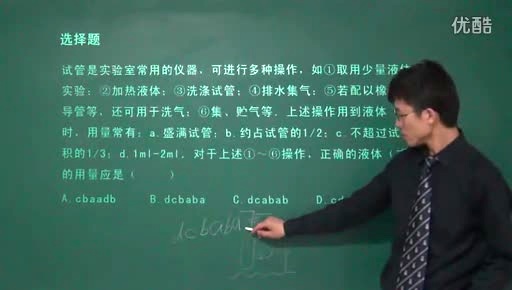 优酷
选择题
试管是实验室常用的仪器，可进行多种操作，如①取用少量液体
实验；②加热液体；③洗涤试管；④排水集气；⑤若配以橡
导管等，还可用于洗气；⑥集、贮气等．上述操作用到液体
时，用量常有：a.盛满试管；b.约占试管的1/2；c.不超过试
积的1/3；d.1ml-2ml．对于上述①～⑥操作，正确的液体
的用量应是（　　）
A.cbaadb　B.dcbaba　C.dcabab　D.cd
dcbaba